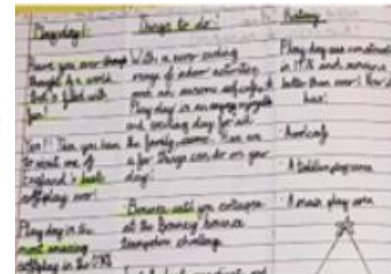 Play day!
Have you ever
thought of a world
that is filled with
fun?
Yes!!! Then you have
to visit one of
England's best
softplay ever!
Play day is the
most amazing
softplay in the UK!
Things to do:
With a ever ending
range of indoor activities
and an awesome
Play day is an
and exciting day for all
the family
a few things can do on your
day:
Bounce until you collapse
at the Bouncy bounce
trampoline challenge
History
Play day was constructed
in 1976 and
better than ever! Now it
has:
A toddler play area
A main play area